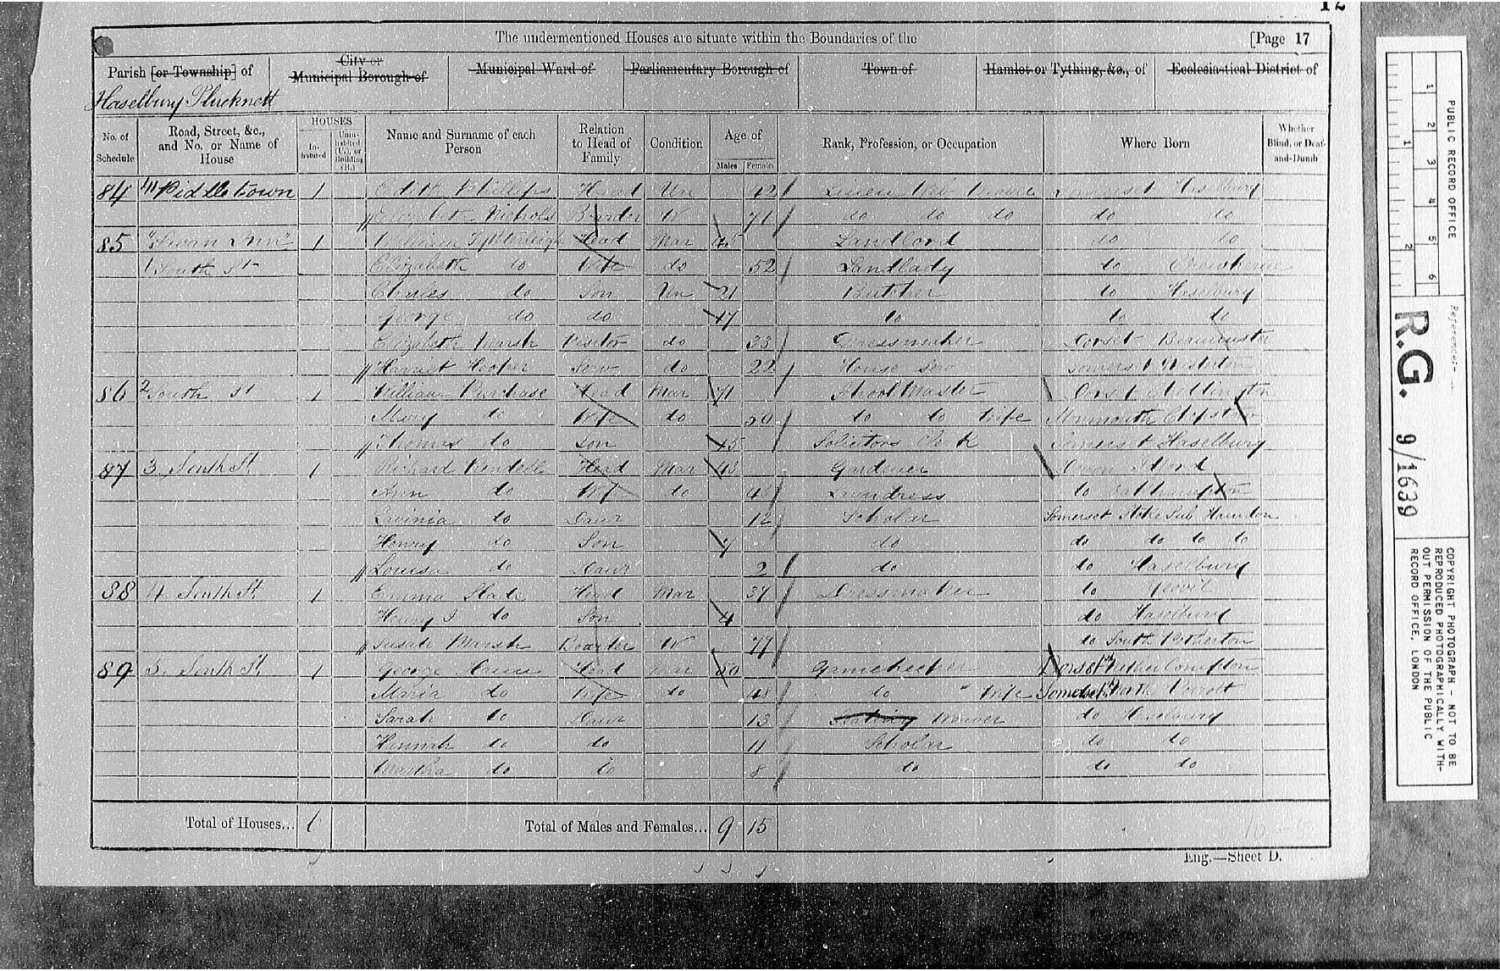 12
The undermentioned Houses are situate within the Boundaries of the [Page 17
Parish [or Township] of City or Municipal Borough of Municipal Ward of Parliamentary Borough of Town of Hamlet or Tything, &c., of Ecclesiastical District of
Haselbury Plucknett
No. of Schedule Road, Street, &c., and No. or Name of House HOUSES Inhabited Uninhabited (U.), or Building (B.) Name and Surname of each Person Relation to Head of Family Condition Age of Males Females Rank, Profession, or Occupation Where Born Whether Blind, or Deaf-and-Dumb
84 11 Piddletown 1 Edith Phillips Head Un 42 Somerset Haselbury
Elizabeth Nichols W 71 do do do do do
85 "Swan Inn" 1 William Head Mar 45 Landlord do do
1 South St Elizabeth do Wife do 52 Landlady do
Charles do Son Un 21 Butcher do Haselbury
George do do 17 do do do
Elizabeth Marsh Visitor do 33 Dressmaker Dorset
Harriet Hooper do 22 House
86 2 South St 1 William Purchase Head Mar 71 School Master Dorset
Mary do Wife do 50 do do Wife Monmouth
Thomas do Son 15 Solicitors Clerk Somerset Haselbury
87 3 South St 1 Richard Head Mar 43 Gardener
Ann do Wife do Laundress do
Lavinia do Daur 12 Scholar Somerset Stoke Sub Hamdon
Henry do Son 7 do do do do do
Louisa do Daur 2 do do Haselbury
88 4 South St 1 Emma Slade Head Mar 37 Dressmaker do Yeovil
Henry J do Son 4 do Haselbury
Susan Marsh Boarder W 77 do South Petherton
89 5 South St 1 George Head Mar 50 Gamekeeper Dorset Nether Compton
Maria do Wife do 48 do " Wife Somerset North
Sarah do Daur 13 Weaver do Haselbury
Hannah do do 11 Scholar do do
Martha do do 8 do do do
Total of Houses... 6 Total of Males and Females... 9 15
Eng.—Sheet D.
PUBLIC RECORD OFFICE
1 2 3 4 5 6
1 2
Reference:-
R.G. 9/1639
COPYRIGHT PHOTOGRAPH - NOT TO BE REPRODUCED PHOTOGRAPHICALLY WITHOUT PERMISSION OF THE PUBLIC RECORD OFFICE, LONDON